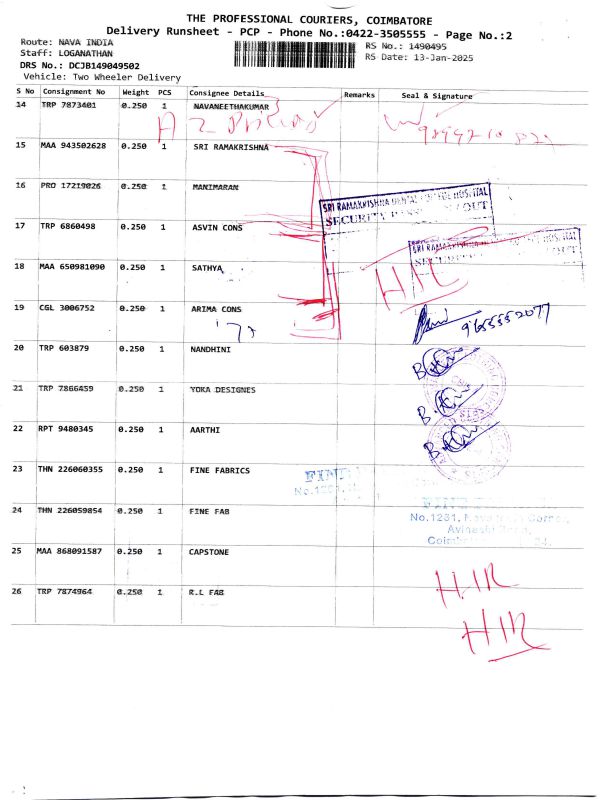 THE PROFESSIONAL COURIERS, COIMBATORE
Delivery Runsheet - PCP - Phone No.:0422-3505555 - Page No.:2
Route: NAVA INDIA
Staff: LOGANATHAN
DRS No.: DCJB149049502
Vehicle: Two Wheeler Delivery
RS No.: 1490495
RS Date: 13-Jan-2025
S No Consignment No Weight PCS Consignee Details Remarks Seal & Signature
14 TRP 7873401 0.250 1 NAVANEETHAKUMAR
15 MAA 943502628 0.250 1 SRI RAMAKRISHNA
16 PRO 17219026 0.250 1 MANIMARAN
SRI RAMAKRISHNA DENTAL HOSPITAL
SECURITY OUT
17 TRP 6860498 0.250 1 ASVIN CONS
SRI RAMAKRISHNA HOSPITAL
OUT
18 MAA 650981090 0.250 1 SATHYA
19 CGL 3006752 0.250 1 ARIMA CONS
9655552077
20 TRP 603879 0.250 1 NANDHINI
21 TRP 7866459 0.250 1 YOKA DESIGNES
22 RPT 9480345 0.250 1 AARTHI
23 THN 226060355 0.250 1 FINE FABRICS
24 THN 226059854 0.250 1 FINE FAB
No.1231, Nava India Corner,
Avinashi Road,
25 MAA 868091587 0.250 1 CAPSTONE
26 TRP 7874964 0.250 1 R.L FAB